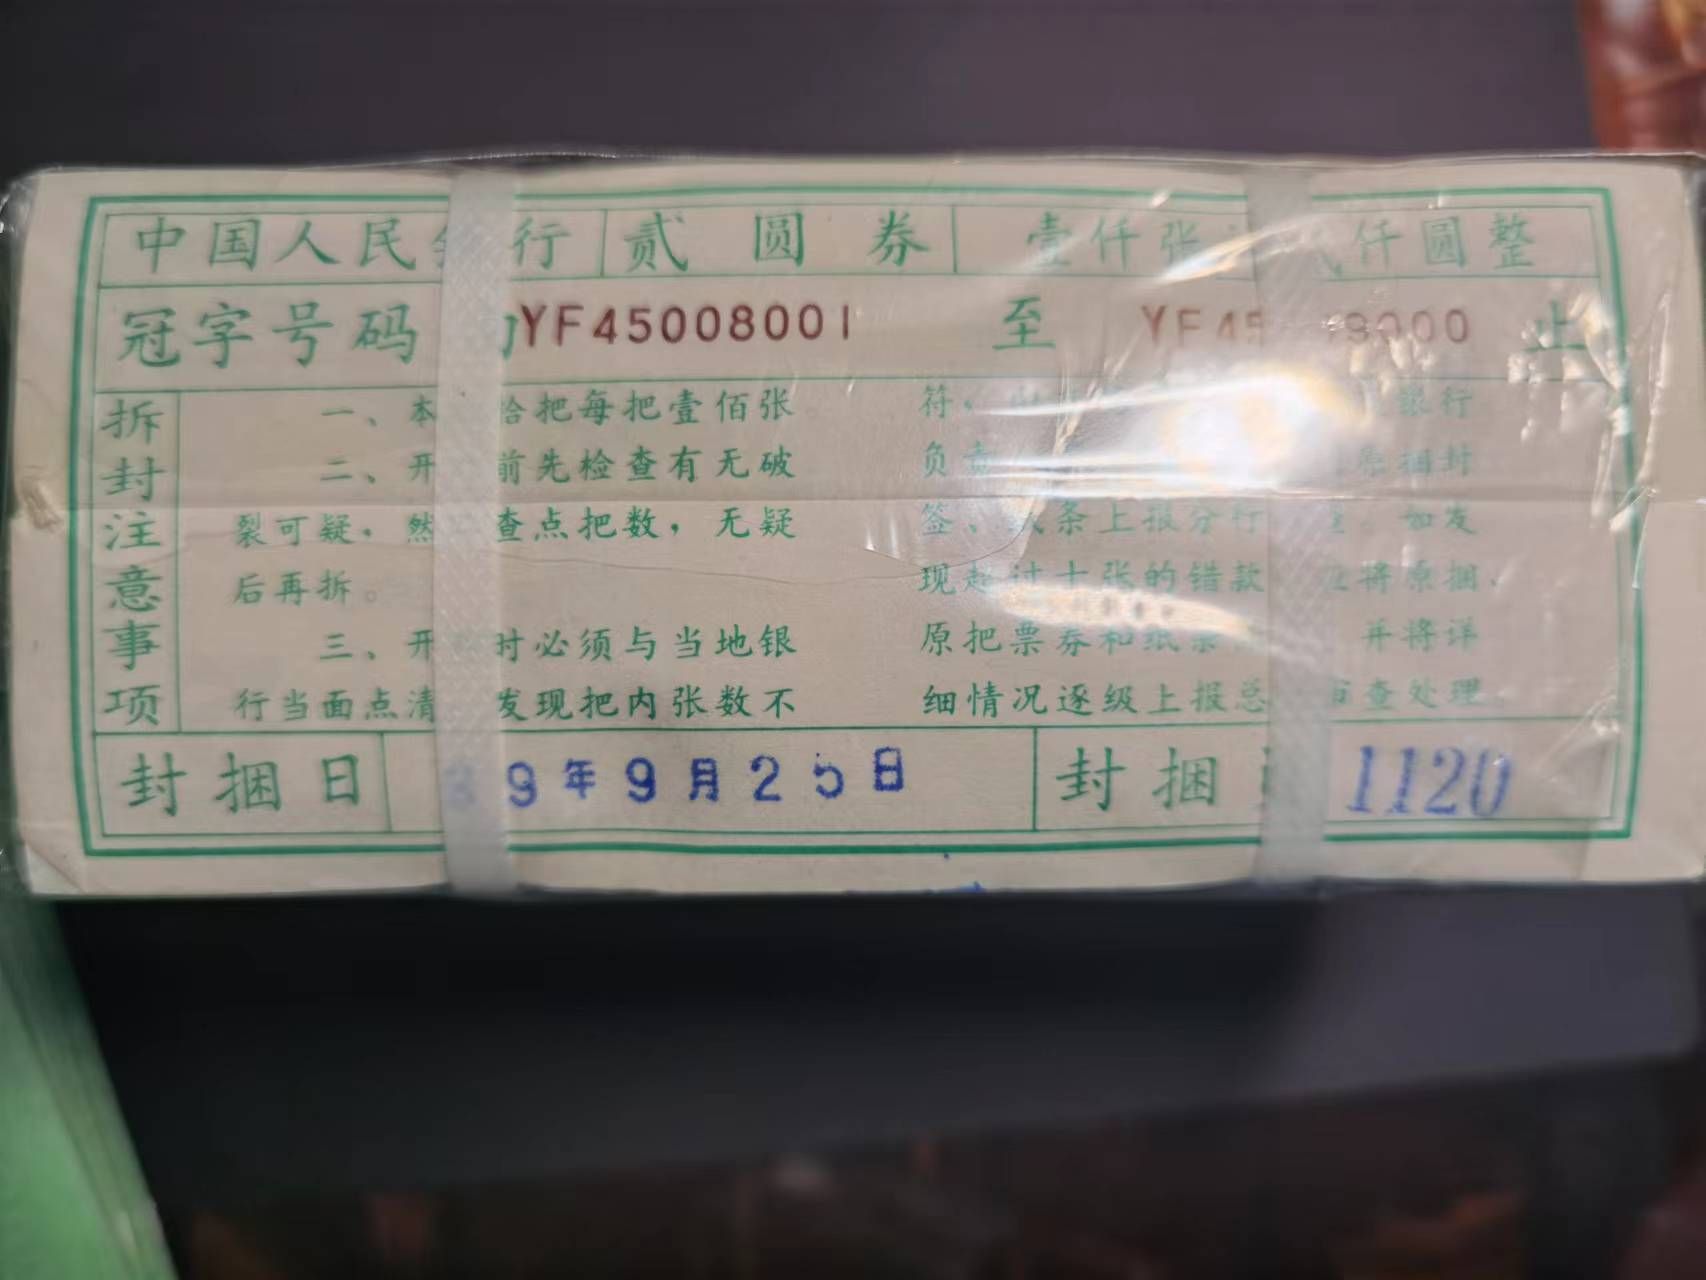 中国人民 行 贰圆券 壹仟张 仟圆整
冠字号码 YF45008001 至 YF45 9000 止
拆封注意事项
一、本 拾把每把壹佰张
二、开 前先检查有无破
裂可疑，然 查点把数，无疑
后再拆。
三、开 时必须与当地银
行当面点清 发现把内张数不
符， 银行
负责 原捆封
签、 条上报分行 。如发
现超过十张的错款 将原捆、
原把票券和纸条 并将详
细情况逐级上报总 审查处理。
封捆日 9年9月25日 封捆 1120